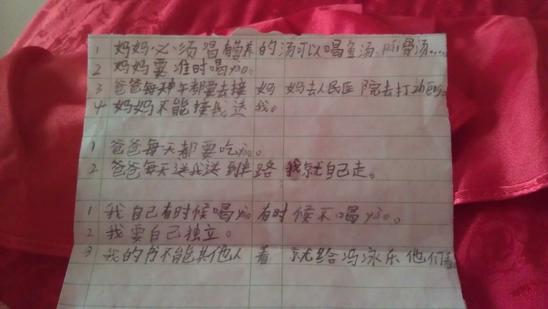 1 妈妈必须喝有营养的汤可以喝鱼汤 排骨汤……
2 妈妈要准时喝yao。
3 爸爸每天中午都要去接妈妈去人民医院去打
4 妈妈不能接我送我。
1 爸爸每天都要吃yao。
2 爸爸每天送我送到 路 我就自己走。
1 我自己有时候喝yao有时候不喝yao。
2 我要自己独立。
3 我的 不能 其他人看 就给冯泳乐他们看